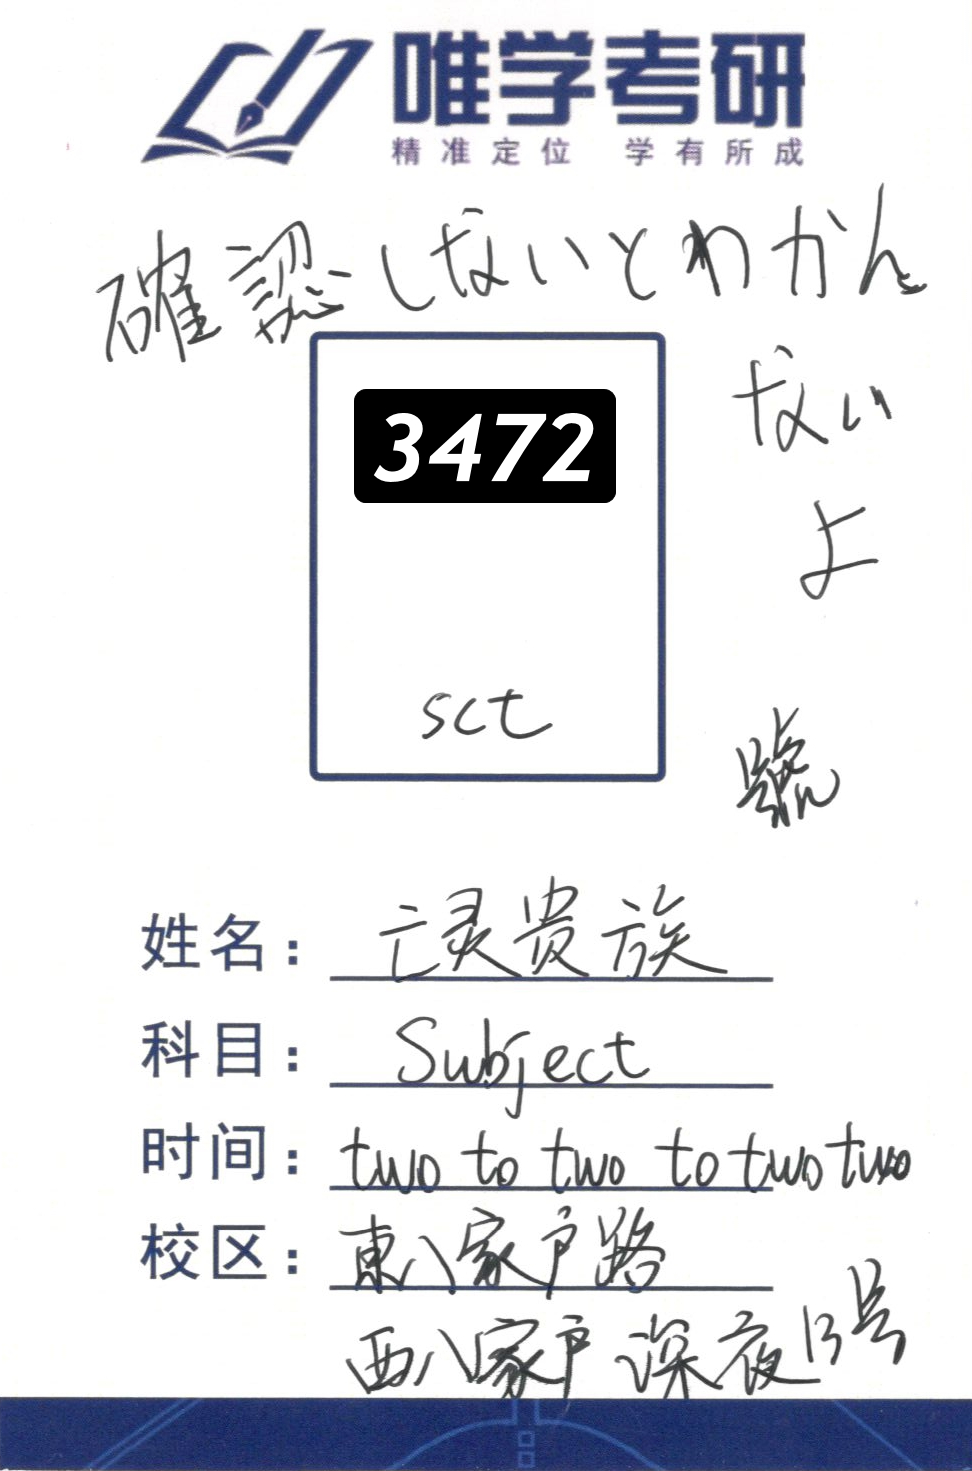 唯学考研
精准定位 学有所成
確認しないとわかん
ない
よ
3472
sct
號
姓名：亡灵贵族
科目：Subject
时间：two to two to two two
校区：東八家户路
西八家户深夜13号